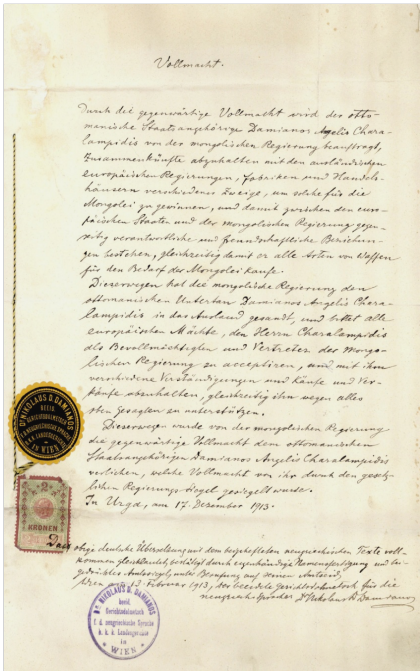 Vollmacht.
Durch die gegenwärtige Vollmacht wird der otto-
manische Staatsangehörige Damianos Angelis Chara-
lampidis von der mongolischen Regierung beauftragt,
Zusammenkünfte abzuhalten mit den ausländischen
europäischen Regierungen, Fabriken und Handels-
häusern verschiedener Zweige, um solche für die
Mongolei zu gewinnen, und damit zwischen den euro-
päischen Staaten und der mongolischen Regierung gegen-
seitig verantwortliche und freundschaftliche Beziehun-
gen bestehen, gleichzeitig damit er alle Arten von Waffen
für den Bedarf der Mongolei kaufe.
Dieserwegen hat die mongolische Regierung den
ottomanischen Untertan Damianos Angelis Chara-
lampidis in das Ausland gesandt, und bittet alle
europäischen Mächte, den Herrn Charalampidis
als Bevollmächtigten und Vertreter der Mongo-
lischen Regierung zu acceptiren, und mit ihm
verschiedene Verständigungen und Käufe und Ver-
käufe abzuhalten, gleichzeitig ihn wegen alles
oben Gesagten zu unterstützen.
Dieserwegen wurde von der mongolischen Regierung
die gegenwärtige Vollmacht dem ottomanischen
Staatsangehörigen Damianos Angelis Charalampidis
verliehen, welche Vollmacht von ihr durch den gesetz-
lichen Regierungs-Siegel gesiegelt wurde.
In Urga, am 17. Dezember 1913.
Dr NIKOLAUS D. DAMIANOS
BEEID.
GERICHTSDOLMETSCH
F. D. NEUGRIECHISCHE SPRACHE
K.K. LANDESGERICHT
IN WIEN
KRONEN
Dass obige deutsche Übersetzung mit dem beigehefteten neugriechischen Texte voll-
kommen gleichlautet, bestätigt durch eigenhändige Namensfertigung und bei-
gedrücktes Amtssiegel, unter Berufung auf seinen Amtseid,
Wien am 13. Februar 1913, der beeidete Gerichtsdolmetsch für die
neugriechische Sprache Dr Nikolaus D. Damianos
Dr. NIKOLAUS D. DAMIANOS
beeid.
Gerichtsdolmetsch
f. d. neugriechische Sprache
k. k. Landesgericht
WIEN